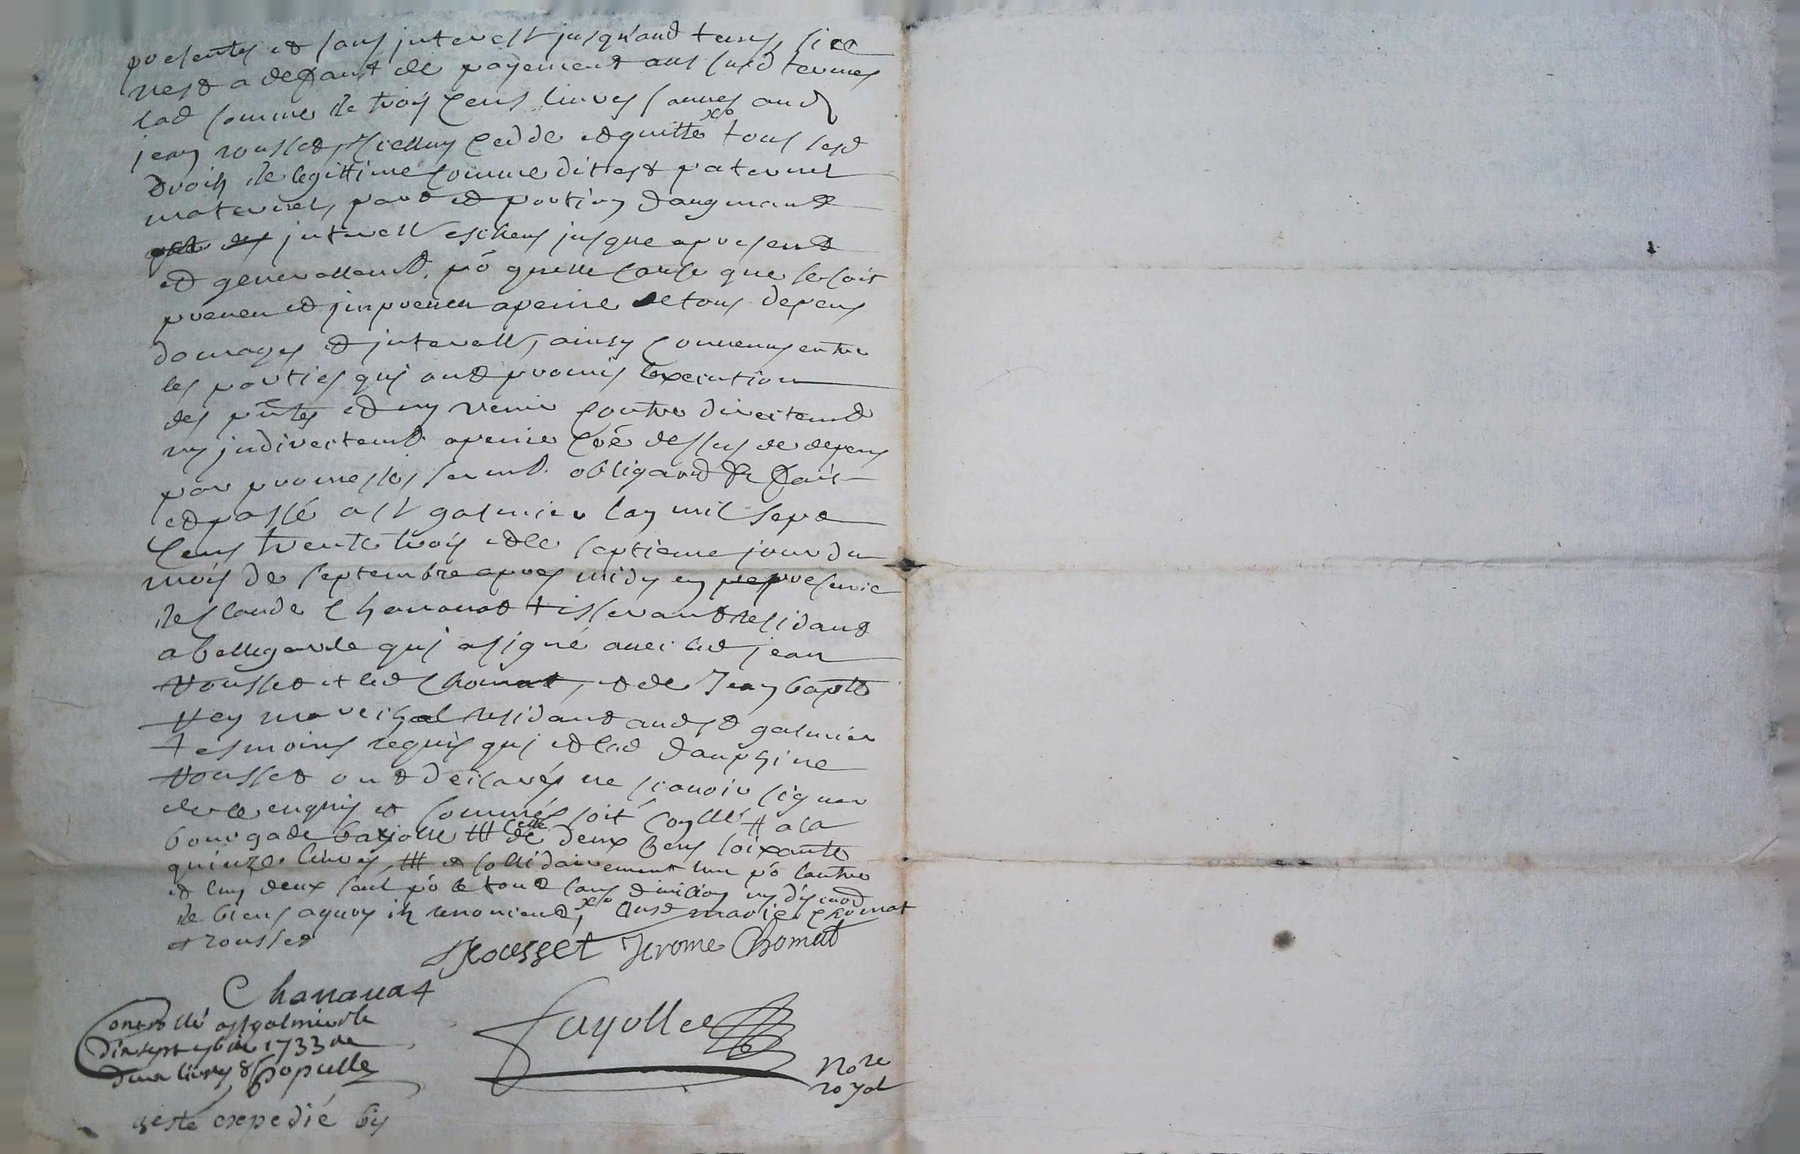 presentes et sans interest jusquaud temps, si ce
nest a defaut de payement aus susd termes
lad somme de trois cens livres sauves aud
jean rousset, Micellus cedde et quitte xo tous sesd
droits de legittime comme dit est paternel
maternel, part et portion daugmant
interest escheus jusque apresent
et generallemt. po quelle cause que se soit
preveu et jmpreveu apeine de tous depens
domages et interest, ainsy convenus entre
les parties qui ont promis lexecution
des pntes et ny venir contre directemt
ny judirectemt. apeine que dessus de depens
par promesses sermt. obligaond &c fait
et passé a St galmier lan mil sept
cens trente trois et le septieme jour du
mois de septembre apres midy en presence
de Claude Chavanat tisserant residant
a bellegarde qui a signé avec led jean
Rousset et led Chomat, et de Jean bapte
Rey marechal residant aud St galmier
tesmoins requis qui et lad dauphine
Rousset ont declarés ne scavoir signer
de ce enquis et sommés soit coyllé # a la
bourgade bayolle ### celle de deux cens soixante
quinze livres ### et sollidairement lun po lautre
et lun deux seul po le tout sans division ny discuon
de biens aquoy ils renoncent, xo Ausd marié Chomat
et rousset
Rousset Jerome Chomat
Chavanat
Fayolle
Nore
royal
Controllé a St galmier le
dix sept 7bre 1733 Re
deux livres 8s Populle
a esté expedié bis